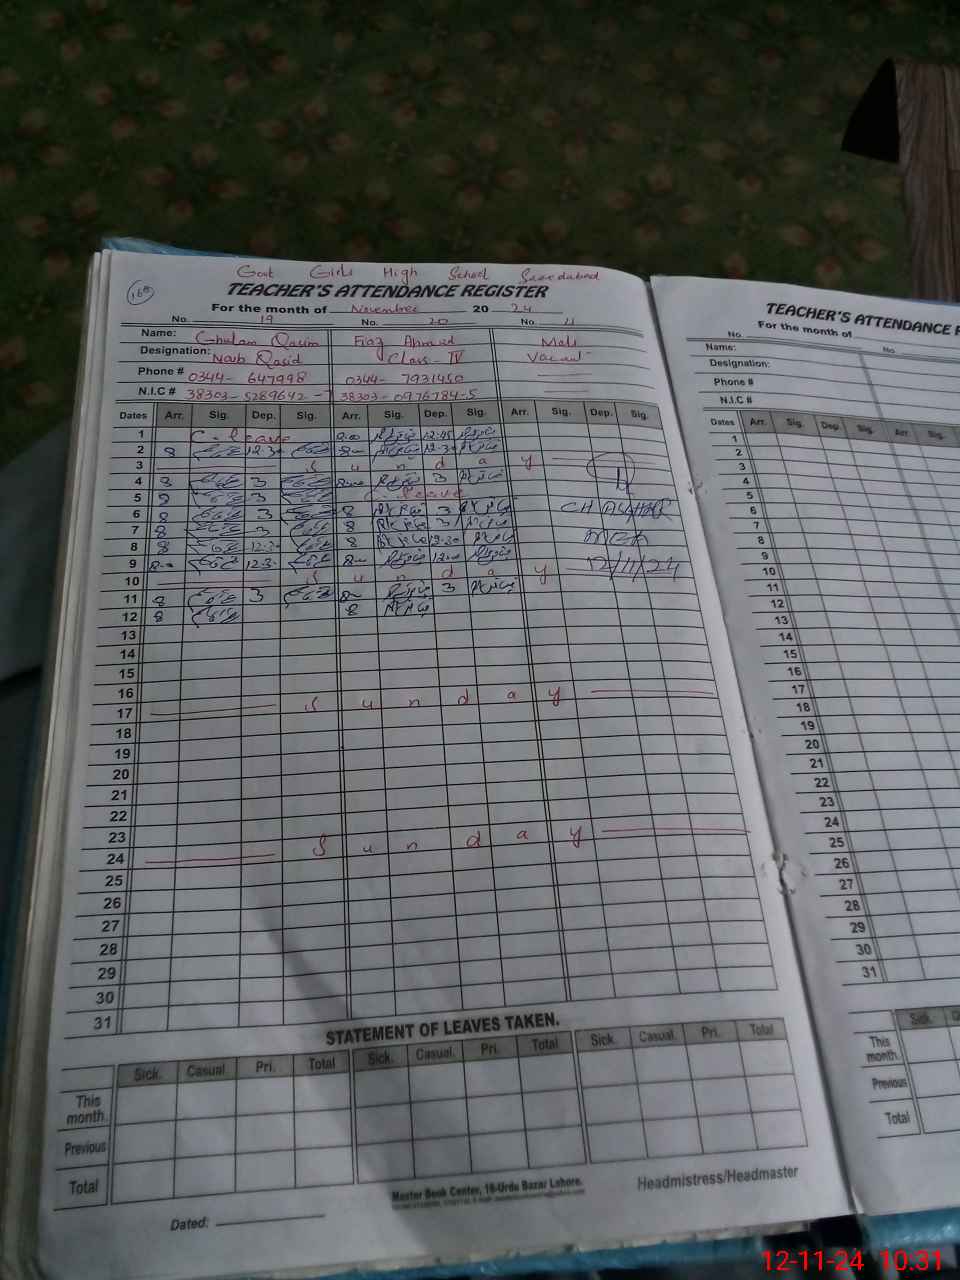 Govt Girls High School Saeedabad
168
TEACHER'S ATTENDANCE REGISTER
For the month of November 2024
No. 19 No. 20 No. 21
Name: Ghulam Qasim Fiaz Ahmad Mali
Designation: Naib Qasid Class-IV Vacant
Phone # 0344- 647998 0344- 7931450
N.I.C # 38303-5289642-7 38303-0976784-5
Dates Arr. Sig. Dep. Sig. Arr. Sig. Dep. Sig. Arr. Sig. Dep. Sig.
1 C. leave 8:00 12:45
2 8 12:30 8:00 12:30
3 Sunday
4 8 3 8:00 3
5 8 3 C. leave
6 8 3 8 3 CH ASGHAR
7 8 3 8 3
8 8 12:30 8 12:30 MEA
9 8:00 12:30 8:00 12:00 12/11/24
10 Sunday
11 8 3 8:00 3
12 8 8
13
14
15
16
17 Sunday
18
19
20
21
22
23
24 Sunday
25
26
27
28
29
30
31
STATEMENT OF LEAVES TAKEN.
Sick. Casual. Pri. Total Sick. Casual. Pri. Total Sick. Casual. Pri. Total
This month.
Previous
Total
Master Book Center, 16-Urdu Bazar Lahore.
Headmistress/Headmaster
Dated:
TEACHER'S ATTENDANCE R
For the month of
No. No.
Name:
Designation:
Phone #
N.I.C #
Dates Arr. Sig. Dep. Sig. Arr. Sig.
1
2
3
4
5
6
7
8
9
10
11
12
13
14
15
16
17
18
19
20
21
22
23
24
25
26
27
28
29
30
31
Sick.
This month.
Previous
Total
12-11-24 10:31